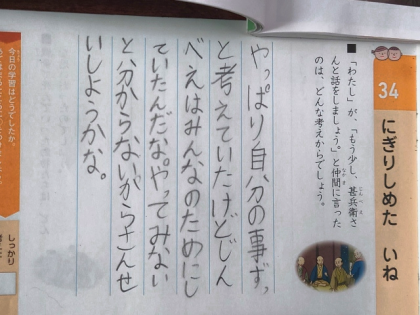 34
にぎりしめた いね
■「わたし」が、「もう少し、甚兵衛さ
んと話をしましょう。」と仲間に言った
のは、どんな考えからでしょう。
やっぱり自分の事ず、
と考えていたけどじん
べえはみんなのためにし
ていたんだな。やってみない
と分からないからさんせ
いしようかな。
今日の学習はどうでしたか。
しっかり